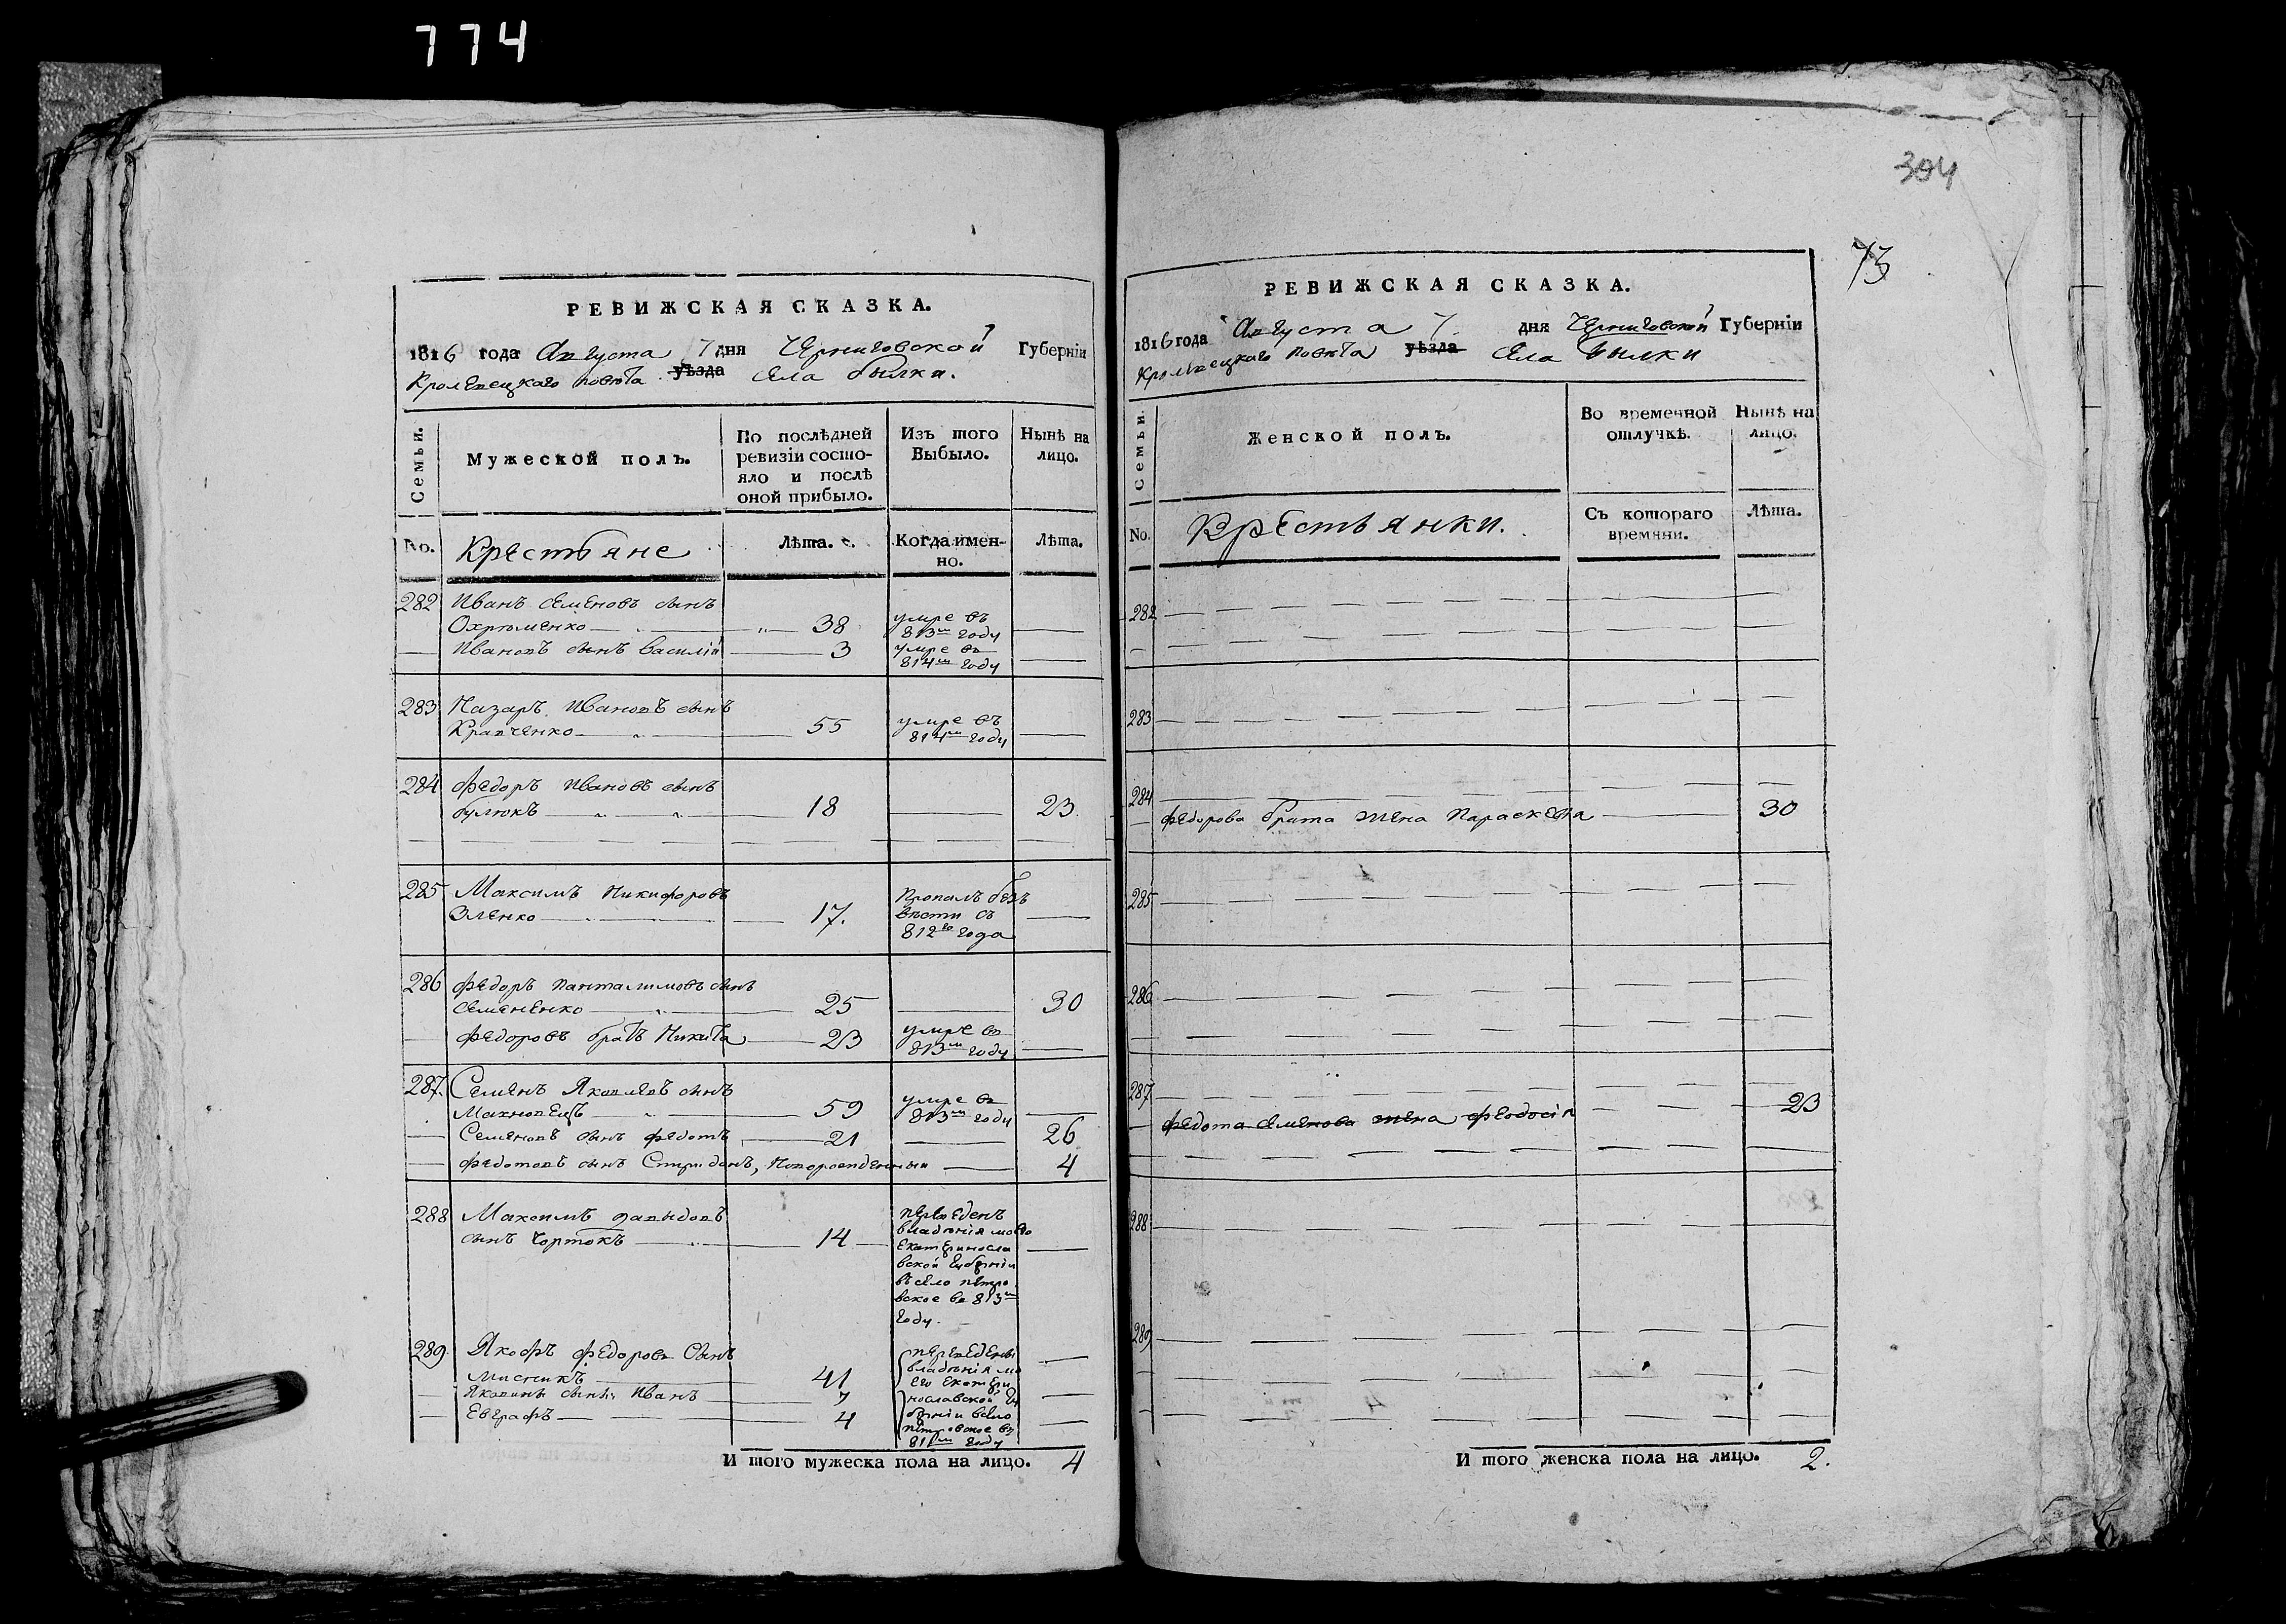 774
РЕВИЖСКАЯ СКАЗКА.
1816 года Августа 7 дня Черниговской Губерніи
Кролевецкаго повѣта уѣзда Села Былки.
Семьи.
Мужеской полъ.
По послѣдней
ревизіи состо-
яло и послѣ
оной прибыло.
Изъ того
Выбыло.
Нынѣ на
лицо.
No.
Крестьяне
Лѣта.
Когда имен-
но.
Лѣта.
282 Иванъ Семеновъ сынъ
Охрѣменко 38 умре въ 813м году
Ивановъ сынъ Василій 3 умре въ 814м году
283 Назаръ Ивановъ сынъ
Кравченко 55 умре въ 814м году
284 Федоръ Ивановъ сынъ
Булюкъ 18 23
285 Максимъ Никифоровъ
Зленко 17. Пропалъ безъ
вѣсти съ
812го года
286 Федоръ Панталимовъ сынъ
Семененко 25 30
Федоровъ братъ Никита 23 умре въ 813м году
287. Семенъ Яковлевъ сынъ
Махновецъ 59 умре въ 813м году
Семеновъ сынъ Федотъ 21 26
Федотовъ сынъ Спиридонъ, Новорожденный 4
288 Максимъ Давыдовъ
сынъ Чортокъ 14
переведенъ
владѣнія моего
Екатериносла
вской Губерніи
въ село Петро
вское въ 813м
году.
289 Якофъ Федоровъ Сынъ
Мисникъ 41
Яковины сыны: Иванъ 7
Евграфъ 4
переведены
владѣнія мо
его Екатери
нославской Гу
берніи всело
Петровское въ
году
И того мужеска пола на лицо. 4
394
73
РЕВИЖСКАЯ СКАЗКА.
1816 года Августа 7. дня Черниговской Губерніи
Кролевецкаго повѣта уѣзда Села Былки
Семьи.
Женской полъ.
Во временной
отлучкѣ.
Нынѣ на
лицо.
No.
Крестьянки.
Съ котораго
времяни.
Лѣта.
282
283
284
Федорова брата жена Параскевіа 30
285
286
287
Федота Семенова жена Феодосія 23
288
289
И того женска пола на лицо. 2.